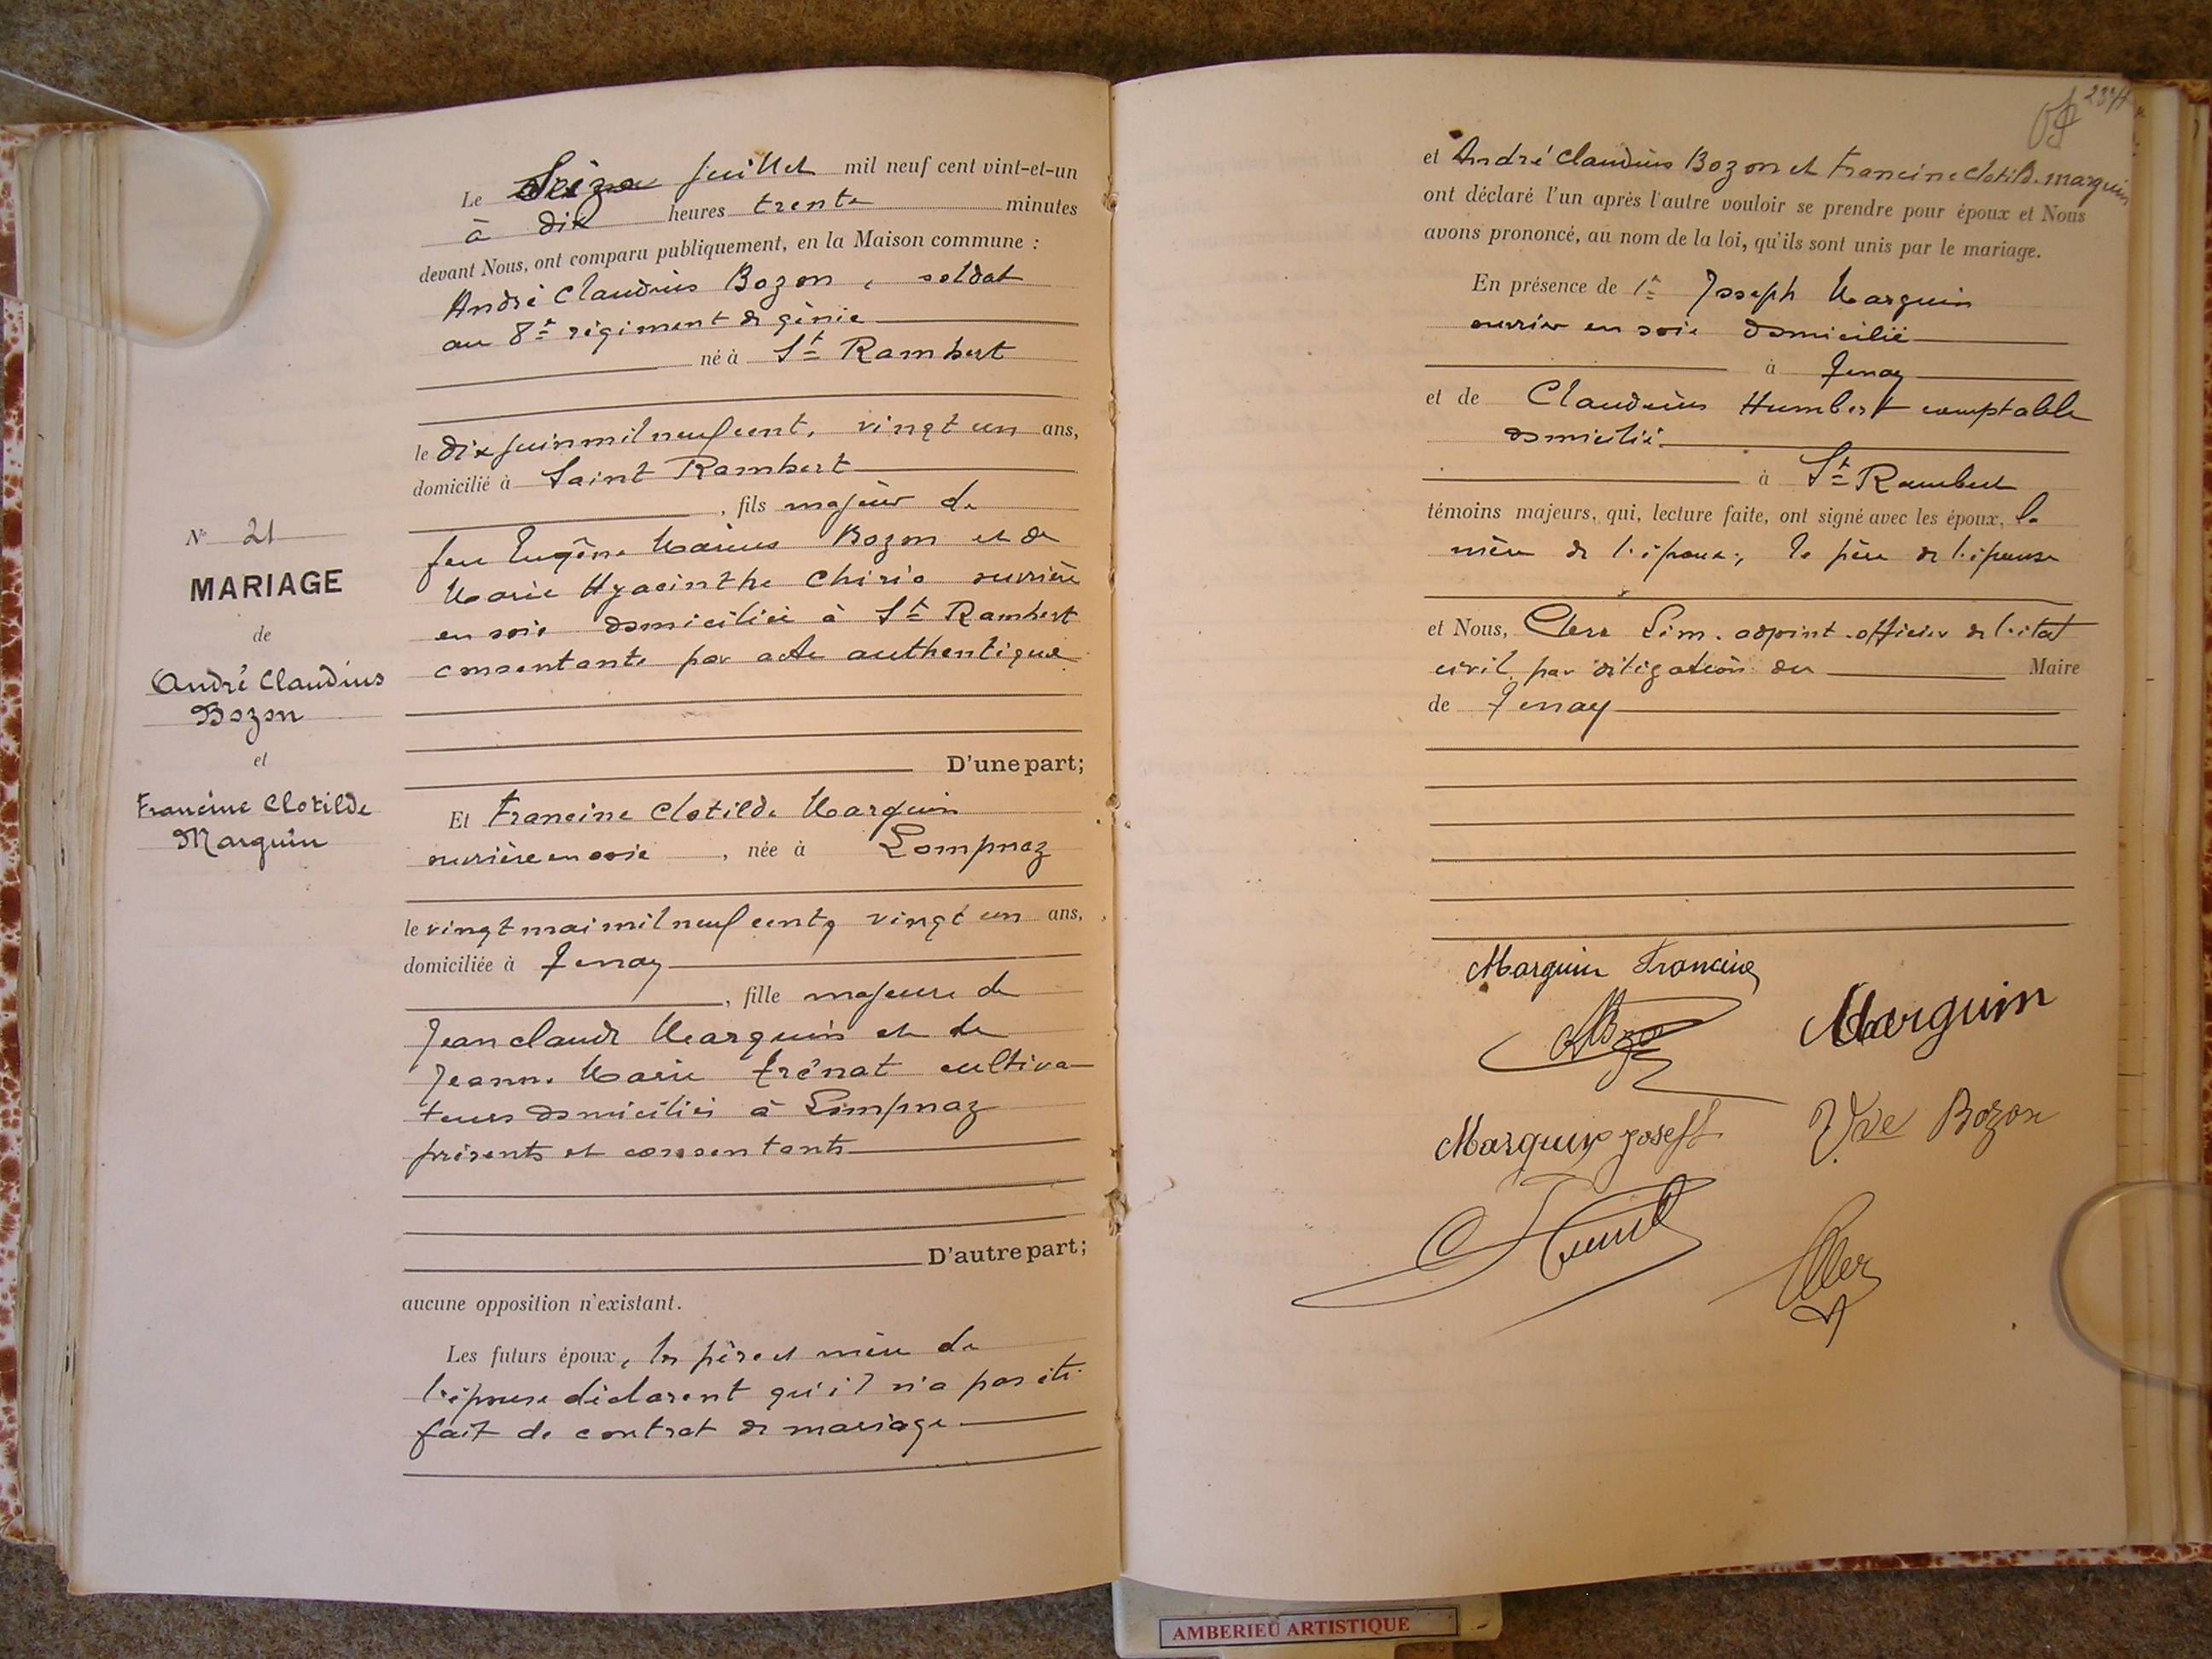 Le Seize juillet mil neuf cent vint-et-un
à dix heures trente minutes
devant Nous, ont comparu publiquement, en la Maison commune :
André Claudius Bozon, soldat
au 8e régiment de génie
né à St Rambert
le dix juin mil neuf cent, vingt un ans,
domicilié à Saint Rambert
, fils majeur de
feu Eugène Marius Bozon et de
Marie Hyacinthe Chirio ouvrière
en soie domiciliée à St Rambert
consentante par acte authentique
D'une part;
N° 21
MARIAGE
de
André Claudius
Bozon
et
Francine Clotilde
Marguin
Et Francine Clotilde Marguin
ouvrière en soie, née à Lompnaz
le vingt mai mil neuf cent, vingt un ans,
domiciliée à Tenay
, fille majeure de
Jean Claude Marguin et de
Jeanne Marie Trénat cultiva-
teurs domiciliés à Lompnaz
présents et consentants
D'autre part;
aucune opposition n'existant.
Les futurs époux, les père et mère de
l'épouse déclarent qu'il n'a pas été
fait de contrat de mariage
et André Claudius Bozon et Francine Clotilde Marguin
ont déclaré l'un après l'autre vouloir se prendre pour époux et Nous
avons prononcé, au nom de la loi, qu'ils sont unis par le mariage.
En présence de 1° Joseph Marguin
ouvrier en soie domicilié
à Tenay
et de Claudius Humbert comptable
domicilié
à St Rambert
témoins majeurs, qui, lecture faite, ont signé avec les époux, la
mère de l'époux, le père de l'épouse
et Nous, adjoint officier de l'état
civil par délégation du Maire
de Tenay
Marguin Francine
ABozon
Marguin
Marguin Joseph
Vve Bozon
AMBERIEU ARTISTIQUE